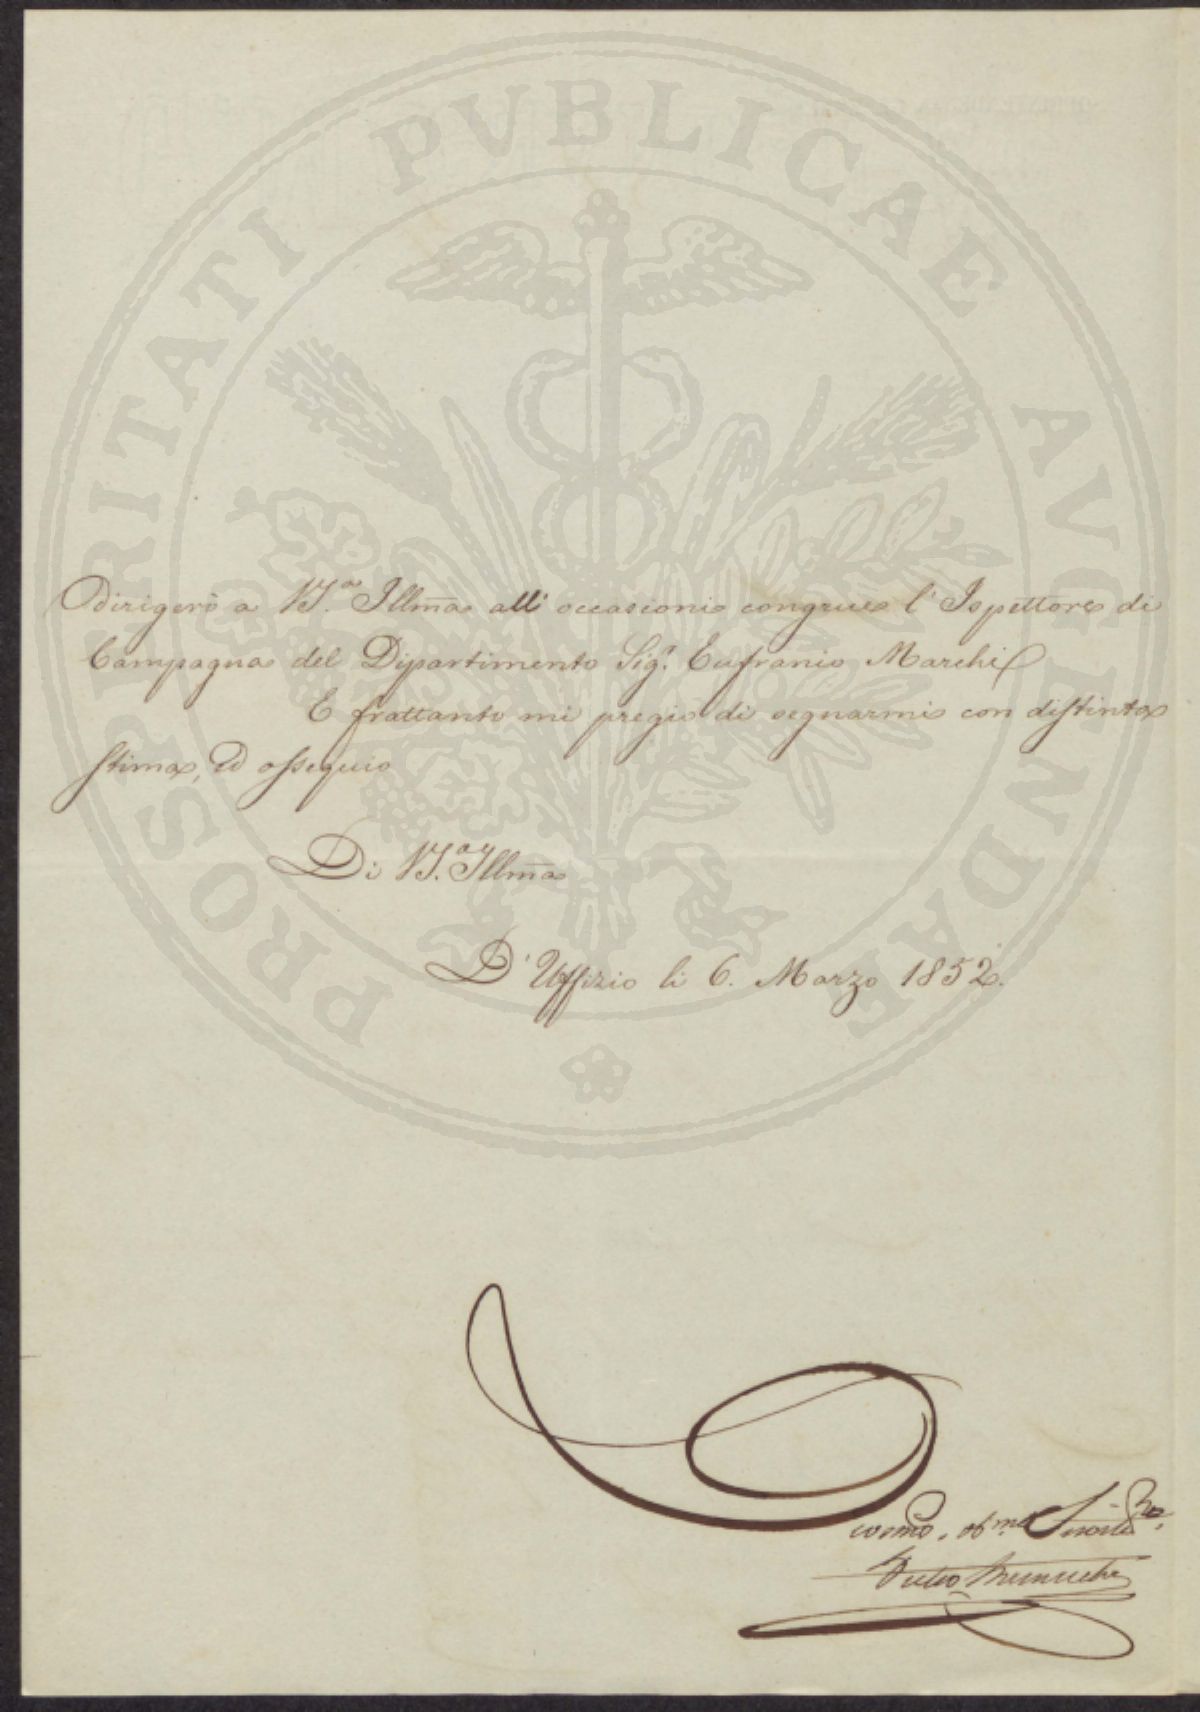 PROSPERITATI PVBLICAE AVGENDAE
Dirigerò a V.S.ª Illm̃a all' occasioni congrue l' Ispettore di
Campagna del Dipartimento Sig.r Eufranio Marchi
E frattanto mi pregio di segnarmi con distinta
stima, ed ossequio
Di V.S.ª Illm̃a
D' Uffizio li 6. Marzo 1852.
obmo
Pietro